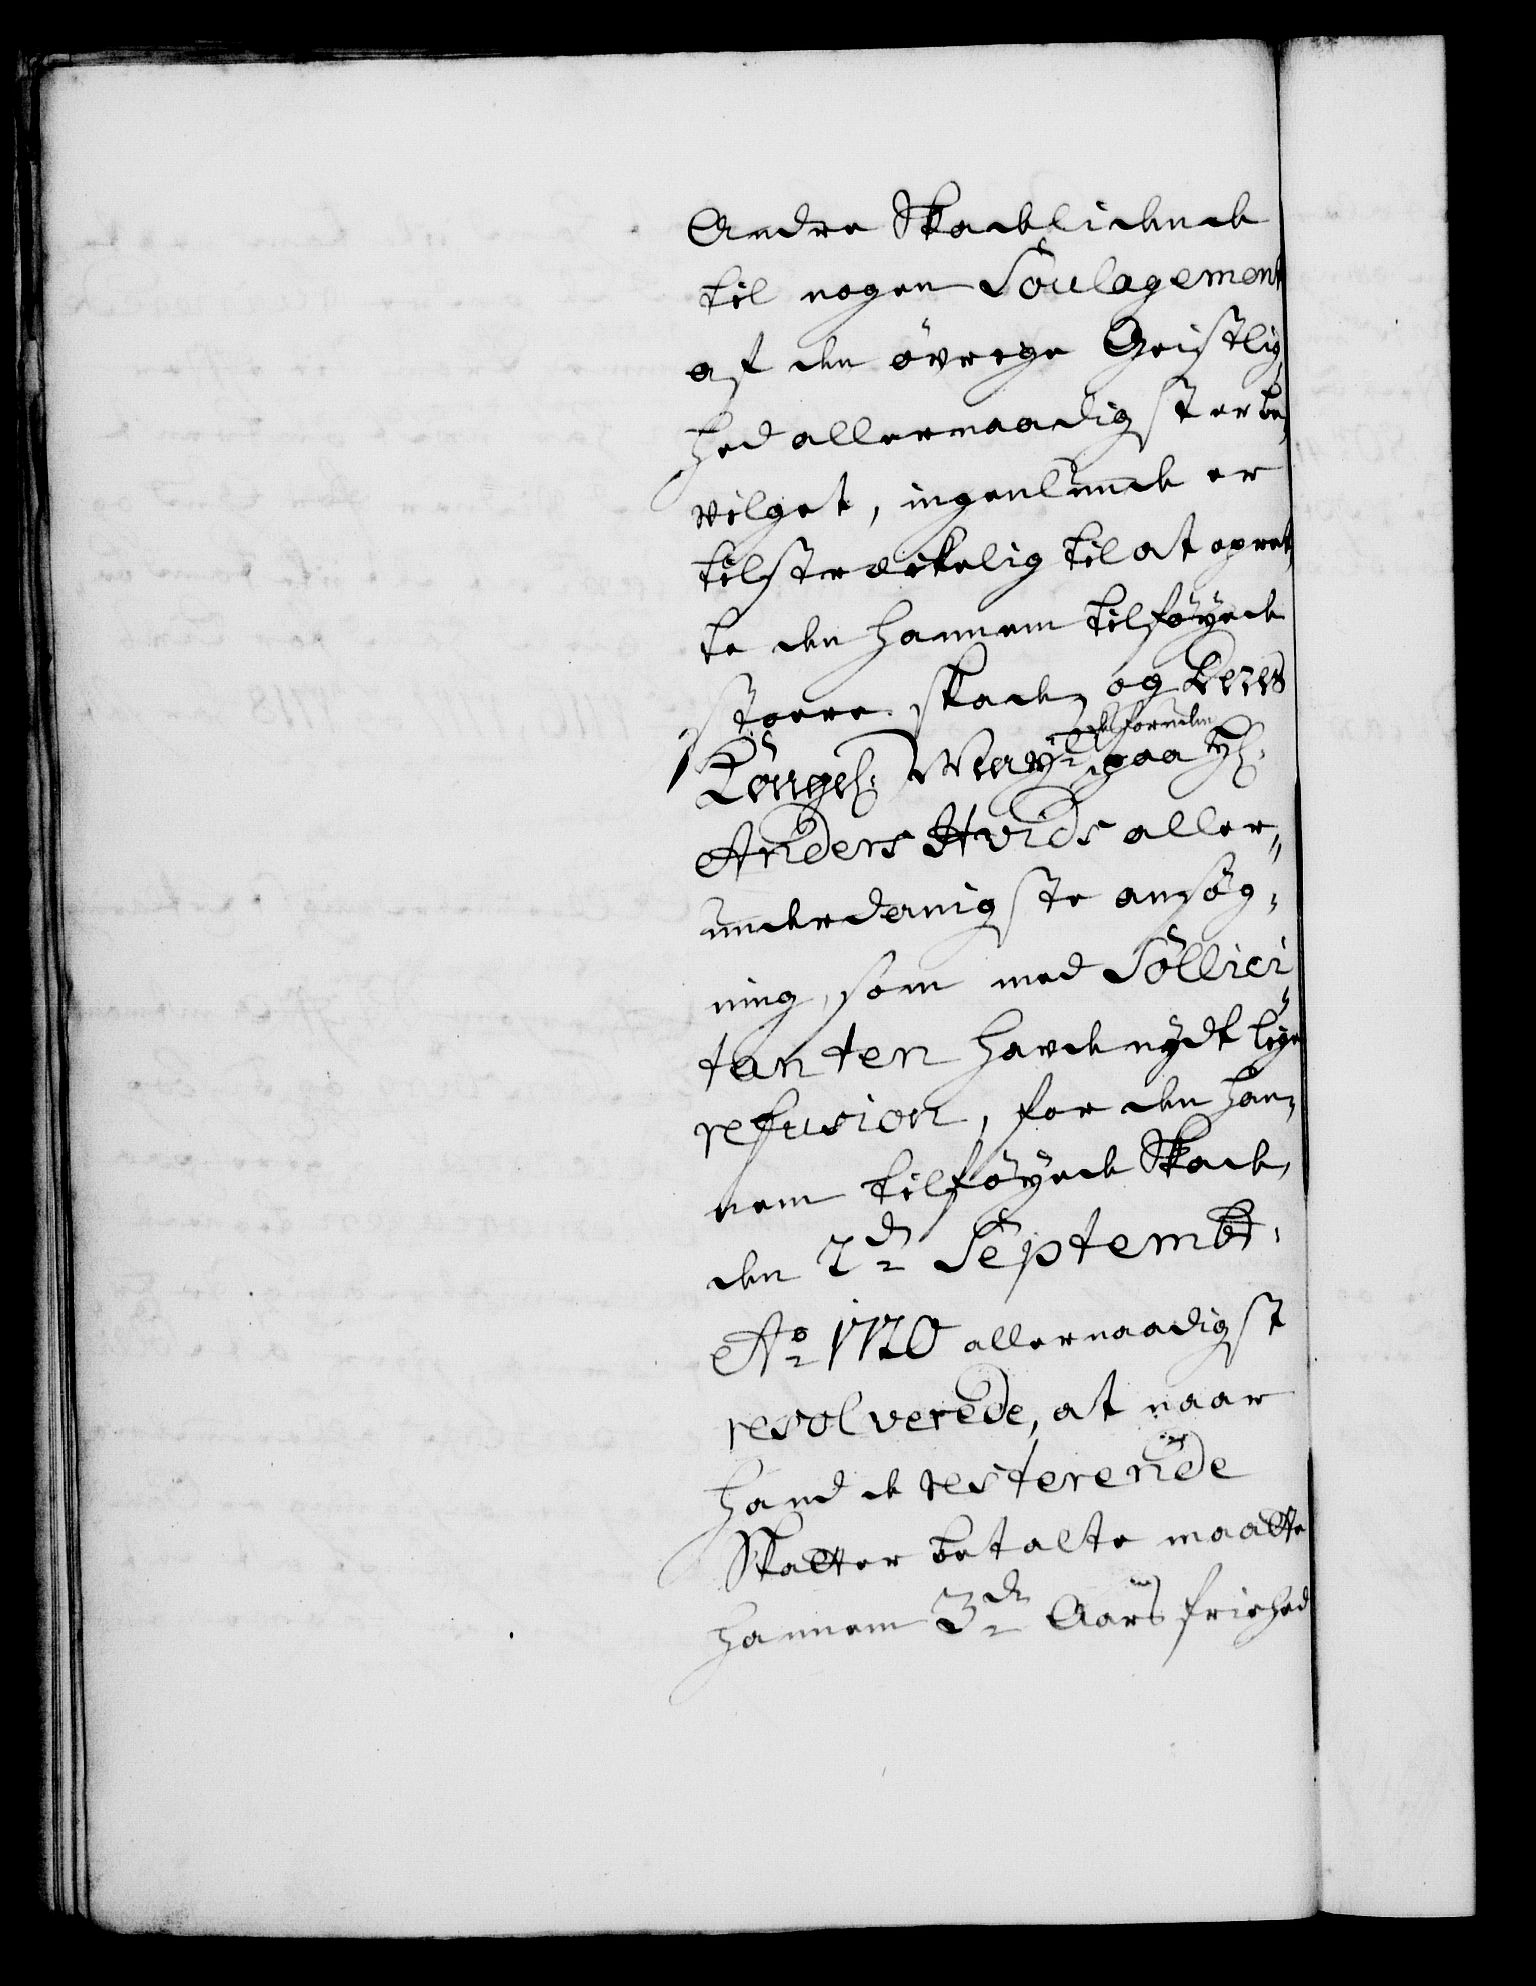 Andre Skadelidende
til nogen Soulagement
af den övrige Geistlig„
hed allernaadigst er be„
vilget, ingenlunde er
tilstreckelig til at opret„
te den hannem tilföyede
stoere skade, og Deres
Kongel: Mayt paa Hr:
desforuden
Anders Hvids aller„
underdanigste ansög„
ning, som med Sollici„
tanten havde nydt lige
refusion, for den han„
nem tilföyede Skade,
den 2den Septembr:
Ao 1720 allernaadigst
resolverede, at naar
hand de resterende
Skatter betalte maatte
hannem 3de Aars friehed